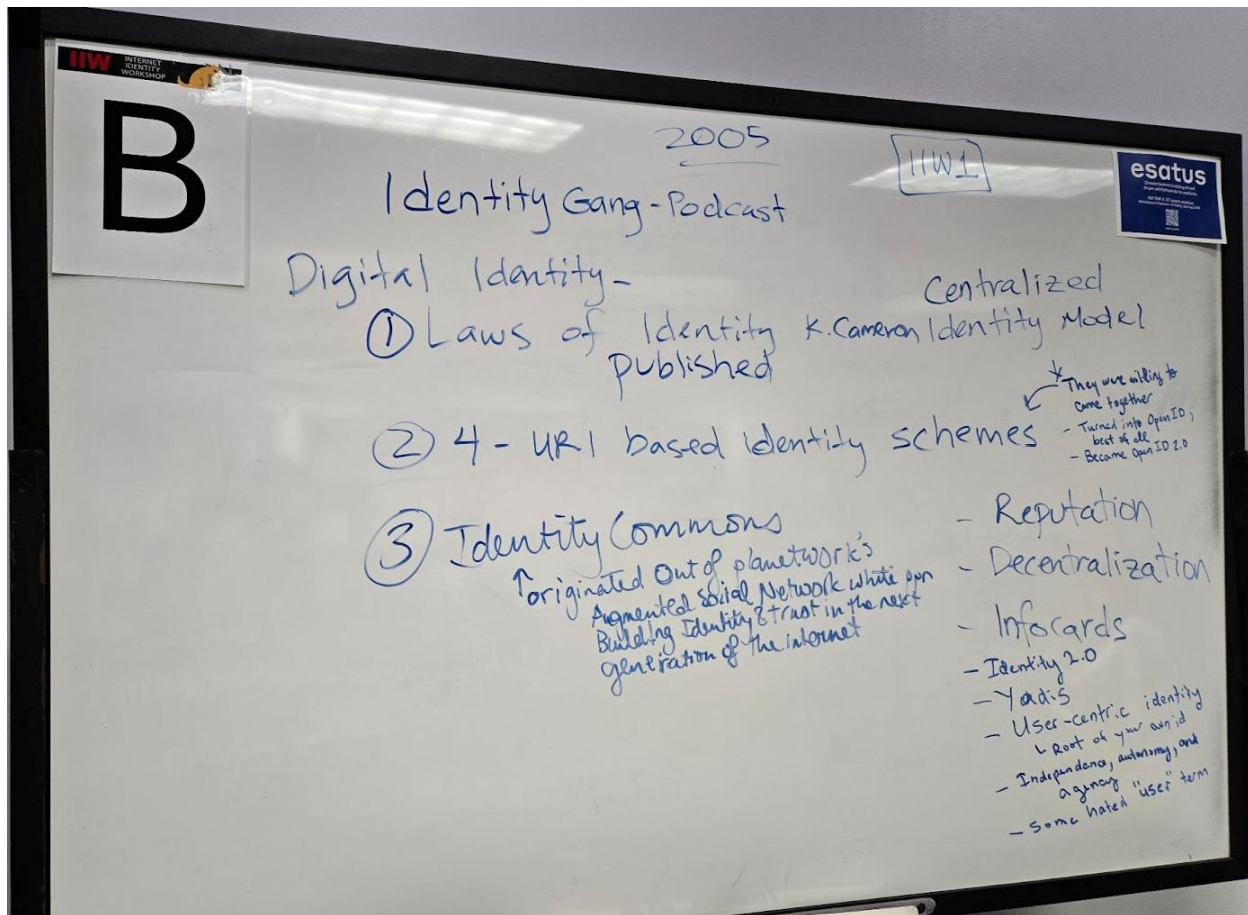 IIW INTERNET
IDENTITY
WORKSHOP
B
2005
IIW1
esatus
Identity Gang - Podcast
Digital Identity -
Centralized
① Laws of Identity K. Cameron Identity Model
published
They were willing to
come together
- Turned into OpenID,
best of all
- Became OpenID 2.0
② 4 - URI based identity schemes
③ Identity Commons
↑ originated Out of planetwork's
Augmented Social Network white ppr
Building Identity & trust in the next
generation of the internet
- Reputation
- Decentralization
- Infocards
- Identity 2.0
- Yadis
- User-centric identity
Root of your own id
- Independence, autonomy, and
agency
- Some hated "user" term